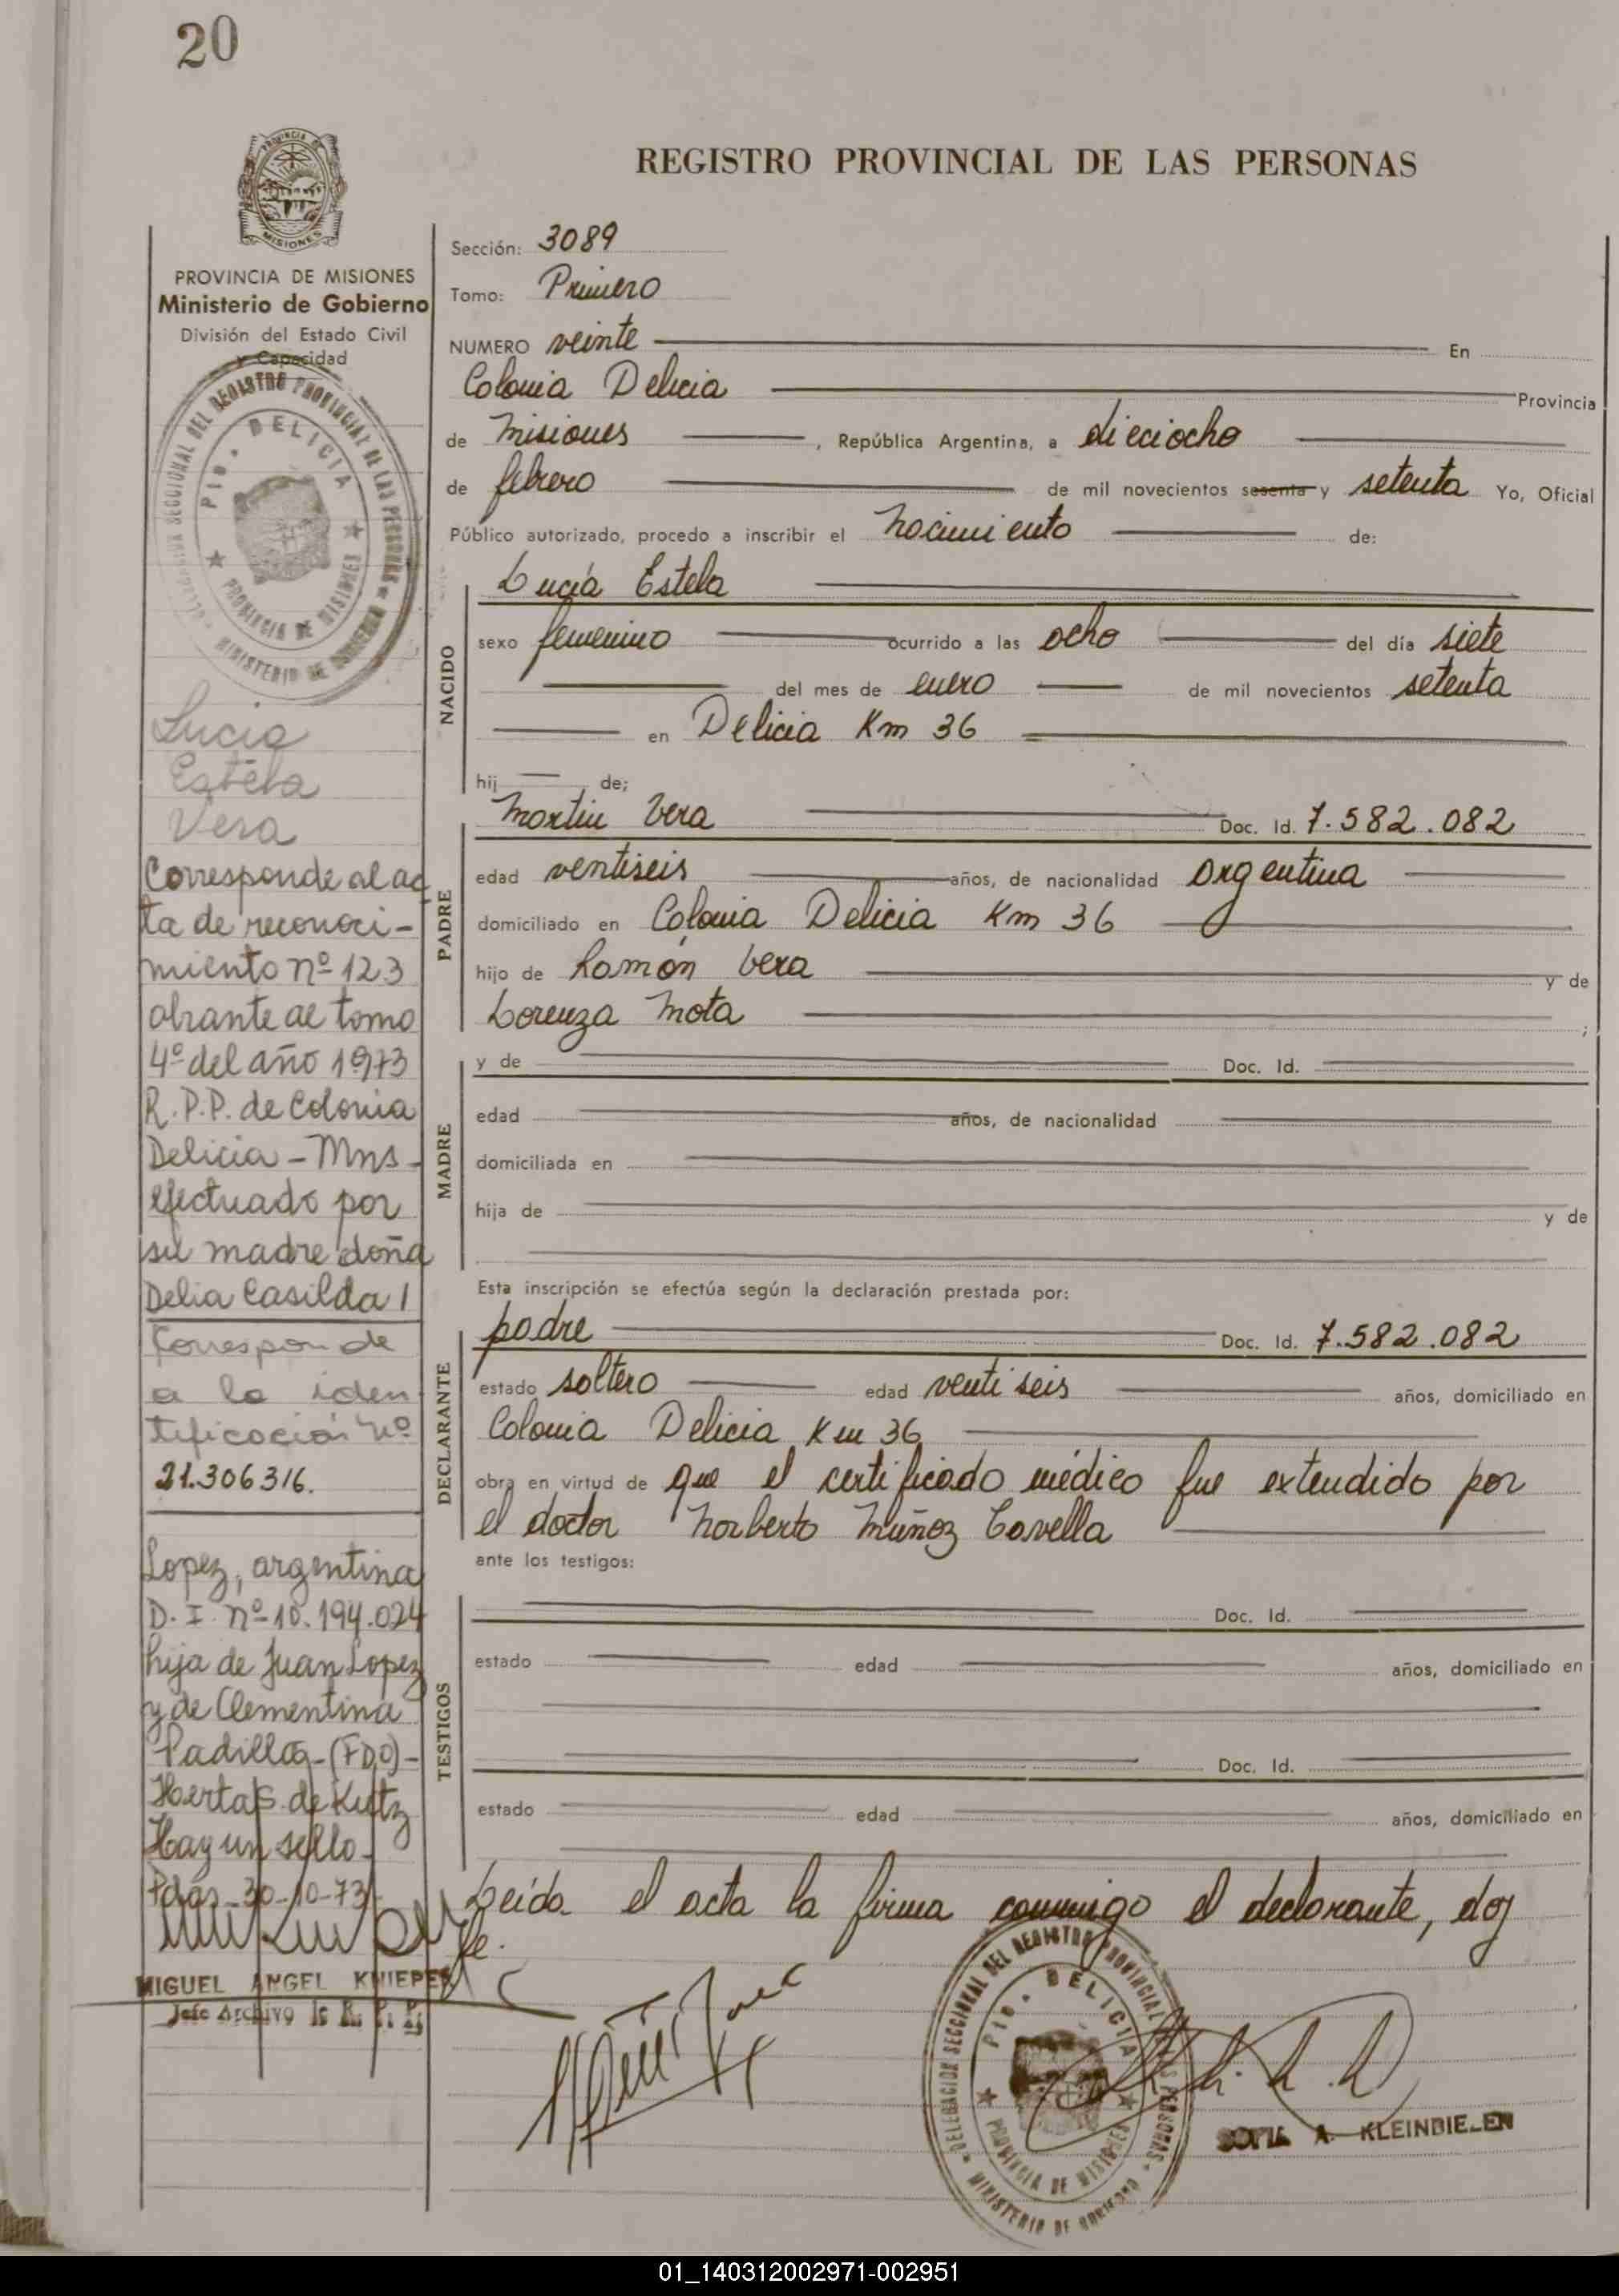 20
PROVINCIA
MISIONES
REGISTRO PROVINCIAL DE LAS PERSONAS
PROVINCIA DE MISIONES
Ministerio de Gobierno
División del Estado Civil
y Capacidad
DELEGACION SECCIONAL DEL REGISTRO PROVINCIAL DE LAS PERSONAS
MINISTERIO DE GOBIERNO
PTO. DELICIA
PROVINCIA DE MISIONES
Lucia
Estela
Vera
Corresponde al ac
ta de reconoci-
miento nº 123
obrante al tomo
4º del año 1973
R.P.P. de Colonia
Delicia - Mns -
efectuado por
su madre doña
Delia Casilda /
Corresponde
a la iden
tificación Nº
21.306316.
Lopez, argentina
D. I. nº 10.194.024
hija de Juan Lopez
y de Clementina
Padilla - (FDO) -
Herta S. de Kutz
Hay un sello -
Pdas - 30-10-73
MIGUEL ANGEL KNIEPER
Jefe Archivo R. P. P.
Sección: 3089
Tomo: Primero
NUMERO veinte En
Colonia Delicia Provincia
de Misiones , República Argentina, a dieciocho
de febrero de mil novecientos sesenta y setenta Yo, Oficial
Público autorizado, procedo a inscribir el nacimiento de:
NACIDO
Lucía Estela
sexo femenino ocurrido a las ocho del día siete
del mes de enero de mil novecientos setenta
en Delicia Km 36
hij de;
PADRE
Martin Vera Doc. Id. 7.582.082
edad ventiseis años, de nacionalidad argentina
domiciliado en Colonia Delicia Km 36
hijo de Ramón Vera y de
Lorenza Mota ;
MADRE
y de Doc. Id.
edad años, de nacionalidad
domiciliada en
hija de y de
Esta inscripción se efectúa según la declaración prestada por:
DECLARANTE
padre Doc. Id. 7.582.082
estado soltero edad ventiseis años, domiciliado en
Colonia Delicia Km 36
obra en virtud de que el certificado médico fue extendido por
el doctor Norberto Muñoz Cavella
ante los testigos:
TESTIGOS
Doc. Id.
estado edad años, domiciliado en
Doc. Id.
estado edad años, domiciliado en
Leída el acta la firma conmigo el declarante, doy
fe.
DELEGACION SECCIONAL DEL REGISTRO PROVINCIAL DE LAS PERSONAS
MINISTERIO DE GOBIERNO
PTO. DELICIA
PROVINCIA DE MISIONES
SOFIA A. KLEINBIELEN
01_140312002971-002951